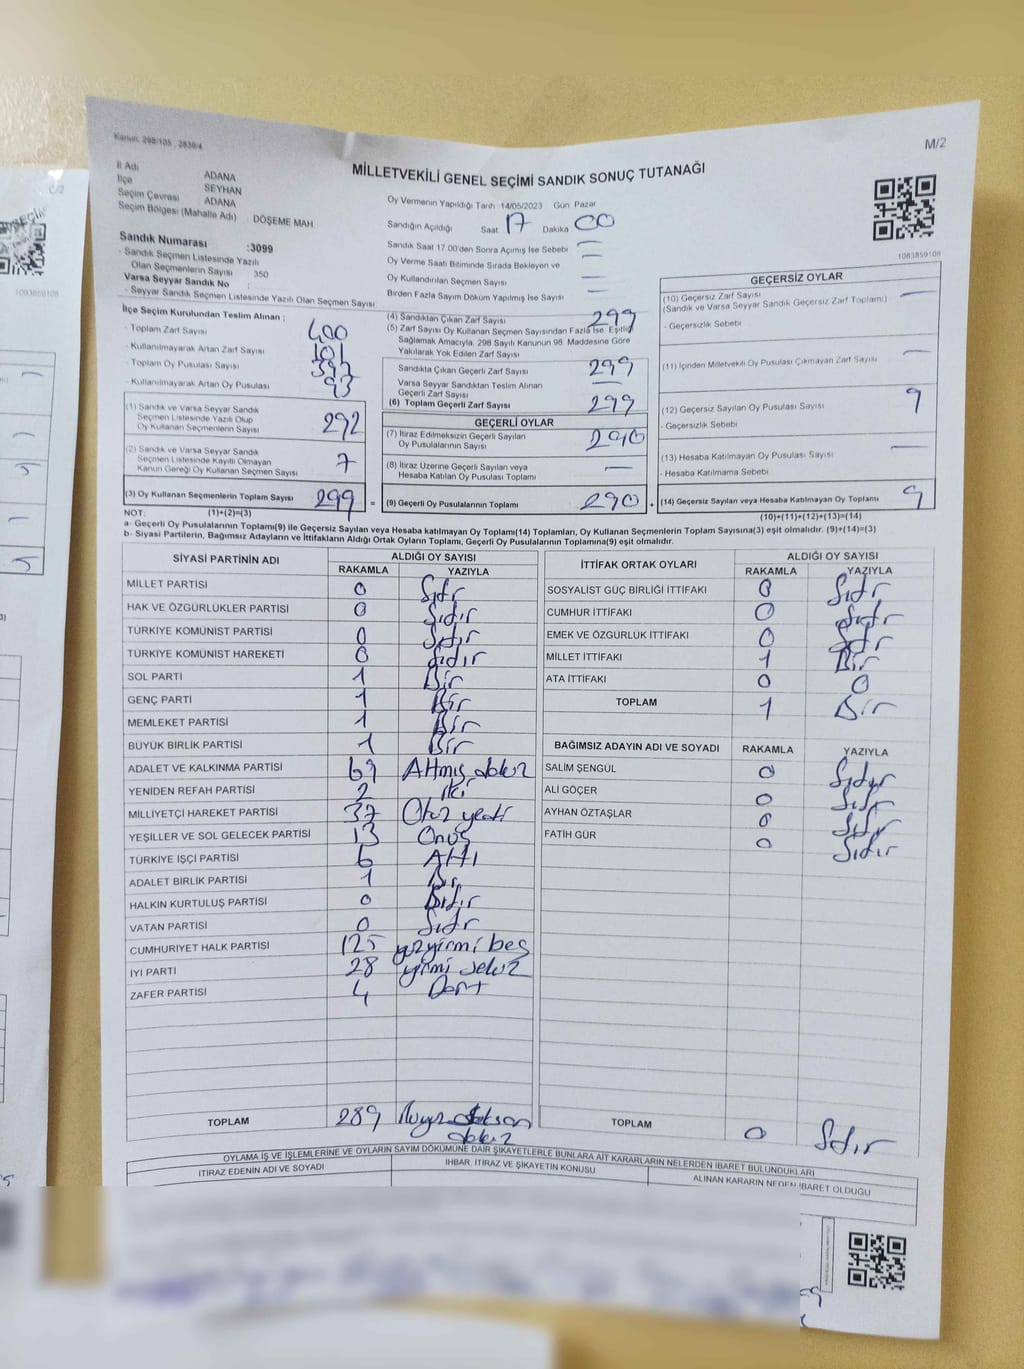 Kanun: 298/105 , 2839/4
M/2
MİLLETVEKİLİ GENEL SEÇİMİ SANDIK SONUÇ TUTANAĞI
İl Adı ADANA
İlçe SEYHAN
Seçim Çevresi ADANA
Seçim Bölgesi (Mahalle Adı) : DÖŞEME MAH
Sandık Numarası :3099
- Sandık Seçmen Listesinde Yazılı
Olan Seçmenlerin Sayısı 350
Varsa Seyyar Sandık No :
- Seyyar Sandık Seçmen Listesinde Yazılı Olan Seçmen Sayısı
Oy Vermenin Yapıldığı Tarih 14/05/2023 Gün Pazar
Sandığın Açıldığı Saat 17 Dakika 00
Sandık Saat 17.00'den Sonra Açılmış İse Sebebi —
Oy Verme Saati Bitiminde Sırada Bekleyen ve
Oy Kullandırılan Seçmen Sayısı —
Birden Fazla Sayım Döküm Yapılmış İse Sayısı —
1083859108
İlçe Seçim Kurulundan Teslim Alınan ;
- Toplam Zarf Sayısı 400
- Kullanılmayarak Artan Zarf Sayısı 101
- Toplam Oy Pusulası Sayısı
- Kullanılmayarak Artan Oy Pusulası 93
(1) Sandık ve Varsa Seyyar Sandık
Seçmen Listesinde Yazılı Olup
Oy Kullanan Seçmenlerin Sayısı 292
(2) Sandık ve Varsa Seyyar Sandık
Seçmen Listesinde Kayıtlı Olmayan
Kanun Gereği Oy Kullanan Seçmen Sayısı 7
(3) Oy Kullanan Seçmenlerin Toplam Sayısı 299 =
(4) Sandıktan Çıkan Zarf Sayısı 299
(5) Zarf Sayısı Oy Kullanan Seçmen Sayısından Fazla İse, Eşitliği
Sağlamak Amacıyla, 298 Sayılı Kanunun 98. Maddesine Göre
Yakılarak Yok Edilen Zarf Sayısı
Sandıkta Çıkan Geçerli Zarf Sayısı 299
Varsa Seyyar Sandıktan Teslim Alınan
Geçerli Zarf Sayısı —
(6) Toplam Geçerli Zarf Sayısı 299
GEÇERLİ OYLAR
(7) İtiraz Edilmeksizin Geçerli Sayılan
Oy Pusulalarının Sayısı 290
(8) İtiraz Üzerine Geçerli Sayılan veya
Hesaba Katılan Oy Pusulası Toplamı —
(9) Geçerli Oy Pusulalarının Toplamı 290 +
GEÇERSİZ OYLAR
(10) Geçersiz Zarf Sayısı —
(Sandık ve Varsa Seyyar Sandık Geçersiz Zarf Toplamı)
- Geçersizlik Sebebi
(11) İçinden Milletvekili Oy Pusulası Çıkmayan Zarf Sayısı —
(12) Geçersiz Sayılan Oy Pusulası Sayısı 9
- Geçersizlik Sebebi
(13) Hesaba Katılmayan Oy Pusulası Sayısı —
- Hesaba Katılmama Sebebi
(14) Geçersiz Sayılan veya Hesaba Katılmayan Oy Toplamı 9
NOT: (1)+(2)=(3) (10)+(11)+(12)+(13)=(14)
a- Geçerli Oy Pusulalarının Toplamı(9) ile Geçersiz Sayılan veya Hesaba katılmayan Oy Toplamı(14) Toplamları, Oy Kullanan Seçmenlerin Toplam Sayısına(3) eşit olmalıdır. (9)+(14)=(3)
b- Siyasi Partilerin, Bağımsız Adayların ve İttifakların Aldığı Ortak Oyların Toplamı, Geçerli Oy Pusulalarının Toplamına(9) eşit olmalıdır.
SİYASİ PARTİNİN ADI ALDIĞI OY SAYISI
RAKAMLA YAZIYLA
MİLLET PARTİSİ 0 Sıfır
HAK VE ÖZGÜRLÜKLER PARTİSİ 0 Sıfır
TÜRKİYE KOMÜNİST PARTİSİ 0 Sıfır
TÜRKİYE KOMÜNİST HAREKETİ 0 Sıfır
SOL PARTİ 1 Bir
GENÇ PARTİ 1 Bir
MEMLEKET PARTİSİ 1 Bir
BÜYÜK BİRLİK PARTİSİ 1 Bir
ADALET VE KALKINMA PARTİSİ 69 Altmış dokuz
YENİDEN REFAH PARTİSİ 2 iki
MİLLİYETÇİ HAREKET PARTİSİ 37 Otuz yedi
YEŞİLLER VE SOL GELECEK PARTİSİ 13 Onüç
TÜRKİYE İŞÇİ PARTİSİ 6 Altı
ADALET BİRLİK PARTİSİ 1 Bir
HALKIN KURTULUŞ PARTİSİ 0 Sıfır
VATAN PARTİSİ 0 Sıfır
CUMHURİYET HALK PARTİSİ 125 yüzyirmi beş
İYİ PARTİ 28 yirmi sekiz
ZAFER PARTİSİ 4 Dört
TOPLAM 289 ikiyüz seksen
dokuz
İTTİFAK ORTAK OYLARI ALDIĞI OY SAYISI
RAKAMLA YAZIYLA
SOSYALİST GÜÇ BİRLİĞİ İTTİFAKI 0 Sıfır
CUMHUR İTTİFAKI 0 Sıfır
EMEK VE ÖZGÜRLÜK İTTİFAKI 0 Sıfır
MİLLET İTTİFAKI 1 Bir
ATA İTTİFAKI 0 0
TOPLAM 1 Bir
BAĞIMSIZ ADAYIN ADI VE SOYADI RAKAMLA YAZIYLA
SALİM ŞENGÜL 0 Sıfır
ALİ GÖÇER 0 Sıfır
AYHAN ÖZTAŞLAR 0 Sıfır
FATİH GÜR 0 Sıfır
TOPLAM 0 Sıfır
OYLAMA İŞ VE İŞLEMLERİNE VE OYLARIN SAYIM DÖKÜMÜNE DAİR ŞİKAYETLERLE BUNLARA AİT KARARLARIN NELERDEN İBARET BULUNDUKLARI
İTİRAZ EDENİN ADI VE SOYADI İHBAR, İTİRAZ VE ŞİKAYETİN KONUSU ALINAN KARARIN NEDEN İBARET OLDUĞU